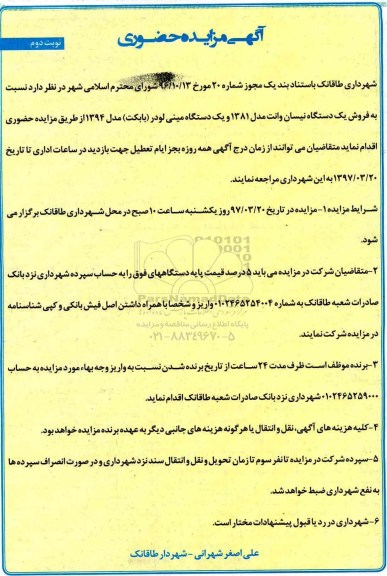 آگهی مزایده حضوری
نوبت دوم
شهرداری طاقانک باستناد بند یک مجوز شماره ۲۰ مورخ ۹۶/۱۰/۱۳ شورای محترم اسلامی شهر در نظر دارد نسبت
به فروش یک دستگاه نیسان وانت مدل ۱۳۸۱ و یک دستگاه مینی لودر (بابکت) مدل ۱۳۹۴ از طریق مزایده حضوری
اقدام نماید متقاضیان می توانند از زمان درج آگهی همه روزه بجز ایام تعطیل جهت بازدید در ساعات اداری تا تاریخ
۱۳۹۷/۰۳/۲۰ به این شهرداری مراجعه نمایند.
شرایط مزایده ۱- مزایده در تاریخ ۹۷/۰۳/۲۰ روز یکشنبه ساعت ۱۰ صبح در محل شهرداری طاقانک برگزار می
شود.
۲- متقاضیان شرکت در مزایده می باید ۵ درصد قیمت پایه دستگاههای فوق را به حساب سپرده شهرداری نزد بانک
صادرات شعبه طاقانک به شماره ۰۱۰۲۴۶۵۲۵۴۰۰۴ واریز و شخصا با همراه داشتن اصل فیش بانکی و کپی شناسنامه
در مزایده شرکت نمایند.
پایگاه اطلاع رسانی مناقصه و مزایده
۰۲۱-۸۸۳۴۹۶۷۰-۵
۳- برنده موظف است ظرف مدت ۲۴ ساعت از تاریخ برنده شدن نسبت به واریز وجه بهاء مورد مزایده به حساب
۰۱۰۲۴۶۵۲۵۹۰۰۰ شهرداری نزد بانک صادرات شعبه طاقانک اقدام نماید.
۴- کلیه هزینه های آگهی، نقل و انتقال یا هر گونه هزینه های جانبی دیگر به عهده برنده مزایده خواهد بود.
۵- سپرده شرکت در مزایده تا نفر سوم تا زمان تحویل و نقل و انتقال سند نزد شهرداری و در صورت انصراف سپرده ها
به نفع شهرداری ضبط خواهد شد.
۶- شهرداری در رد یا قبول پیشنهادات مختار است.
علی اصغر شهرانی - شهردار طاقانک